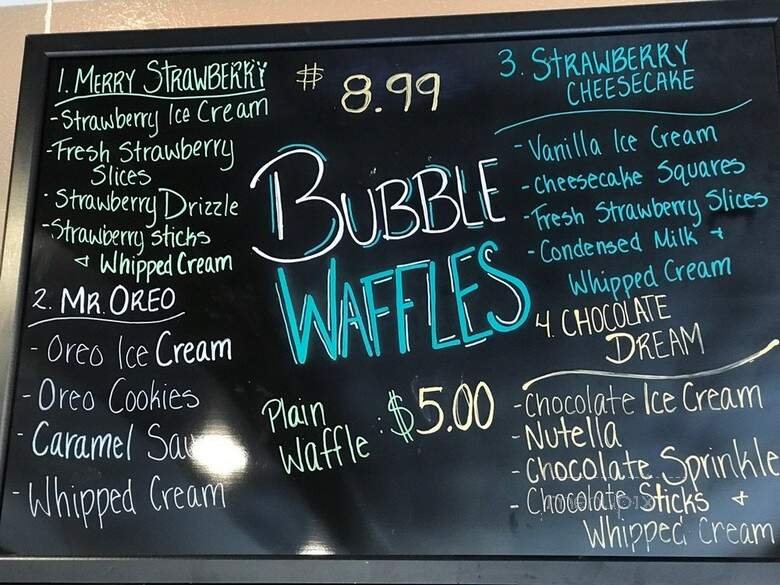 1. MERRY STRAWBERRY
- Strawberry Ice Cream
- Fresh Strawberry
Slices
- Strawberry Drizzle
- Strawberry Sticks
+ Whipped Cream
2. MR. OREO
- Oreo Ice Cream
- Oreo Cookies
- Caramel
- Whipped Cream
$ 8.99
BUBBLE
WAFFLES
Plain
Waffle : $5.00
3. STRAWBERRY
CHEESECAKE
- Vanilla Ice Cream
- Cheesecake Squares
- Fresh Strawberry Slices
- Condensed Milk +
Whipped Cream
4. CHOCOLATE
DREAM
- Chocolate Ice Cream
- Nutella
- Chocolate Sprinkle
- Chocolate Sticks +
Whipped Cream